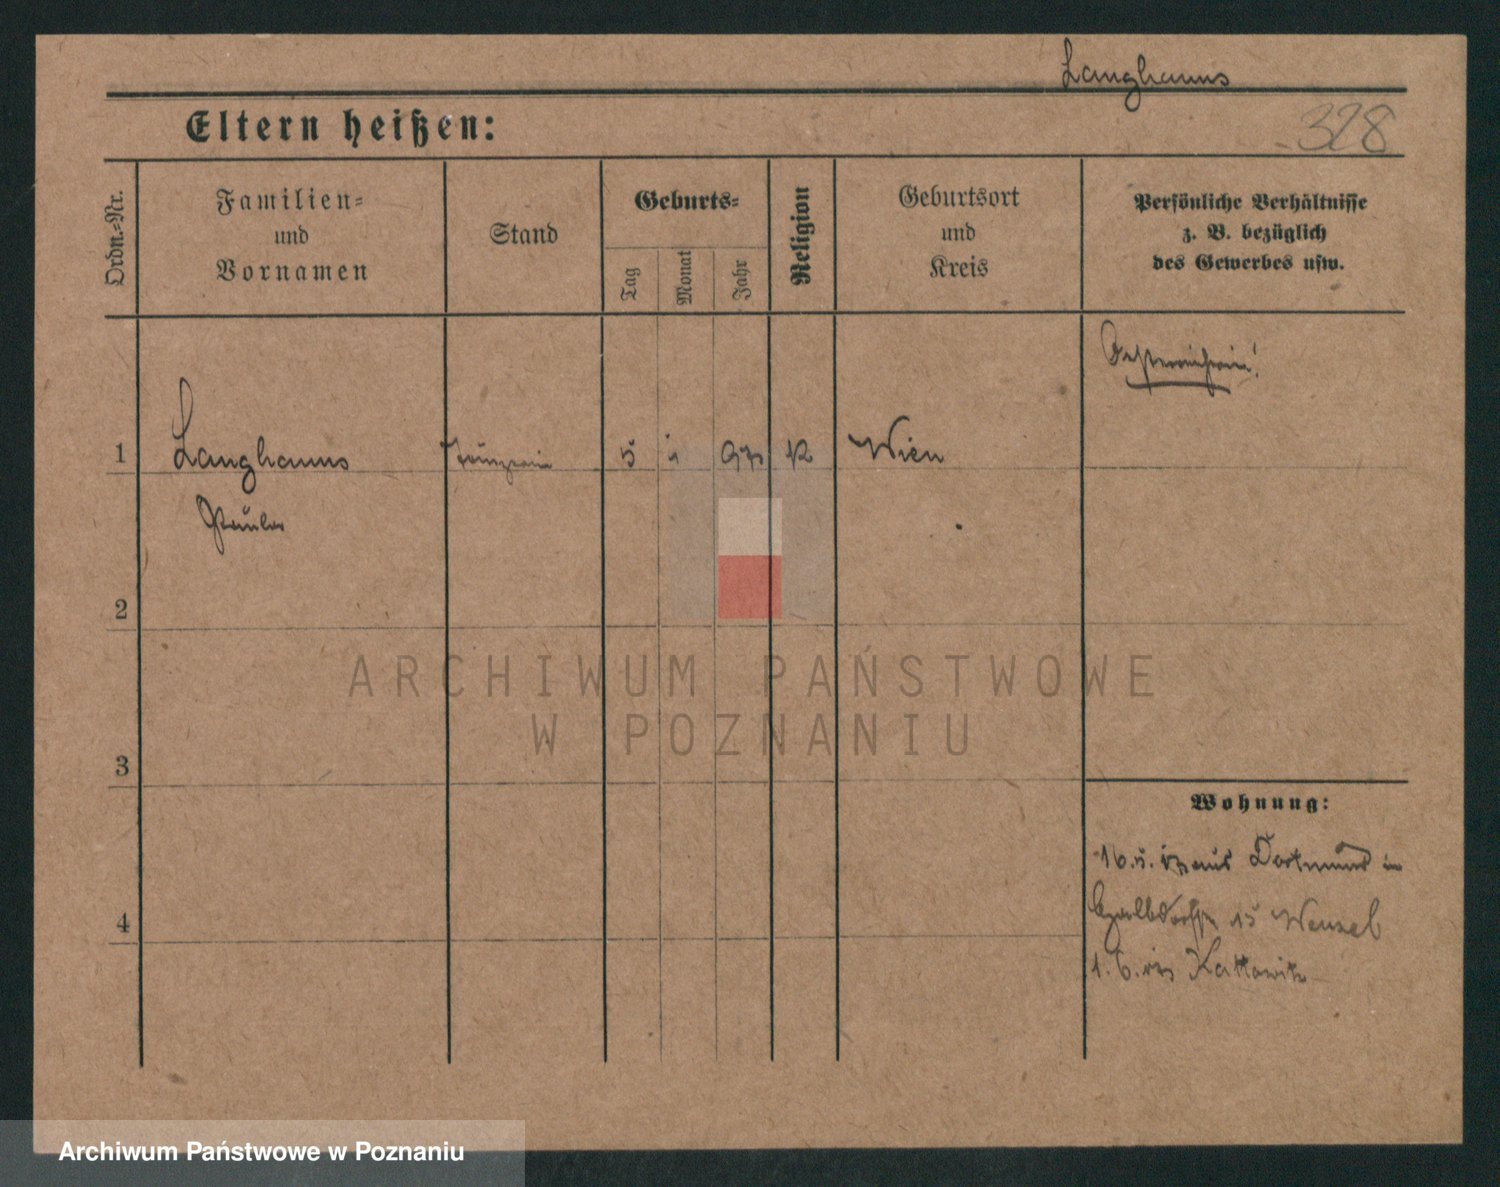 Langhanns
328
Eltern heißen:
Ordn.-Nr.
Familien-
und
Vornamen
Stand
Geburts-
Tag
Monat
Jahr
Religion
Geburtsort
und
Kreis
Persönliche Verhältnisse
z. B. bezüglich
des Gewerbes usw.
1 Langhanns 5 K Wien
Paula
2
3
4
Wohnung:
16. aus Dortmund in
15 Wenzel
1. 6. Kattowitz
ARCHIWUM PAŃSTWOWE
W POZNANIU
Archiwum Państwowe w Poznaniu